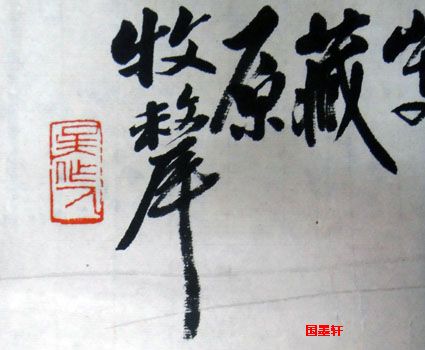 藏
原
牧犛
吴作人
国墨轩